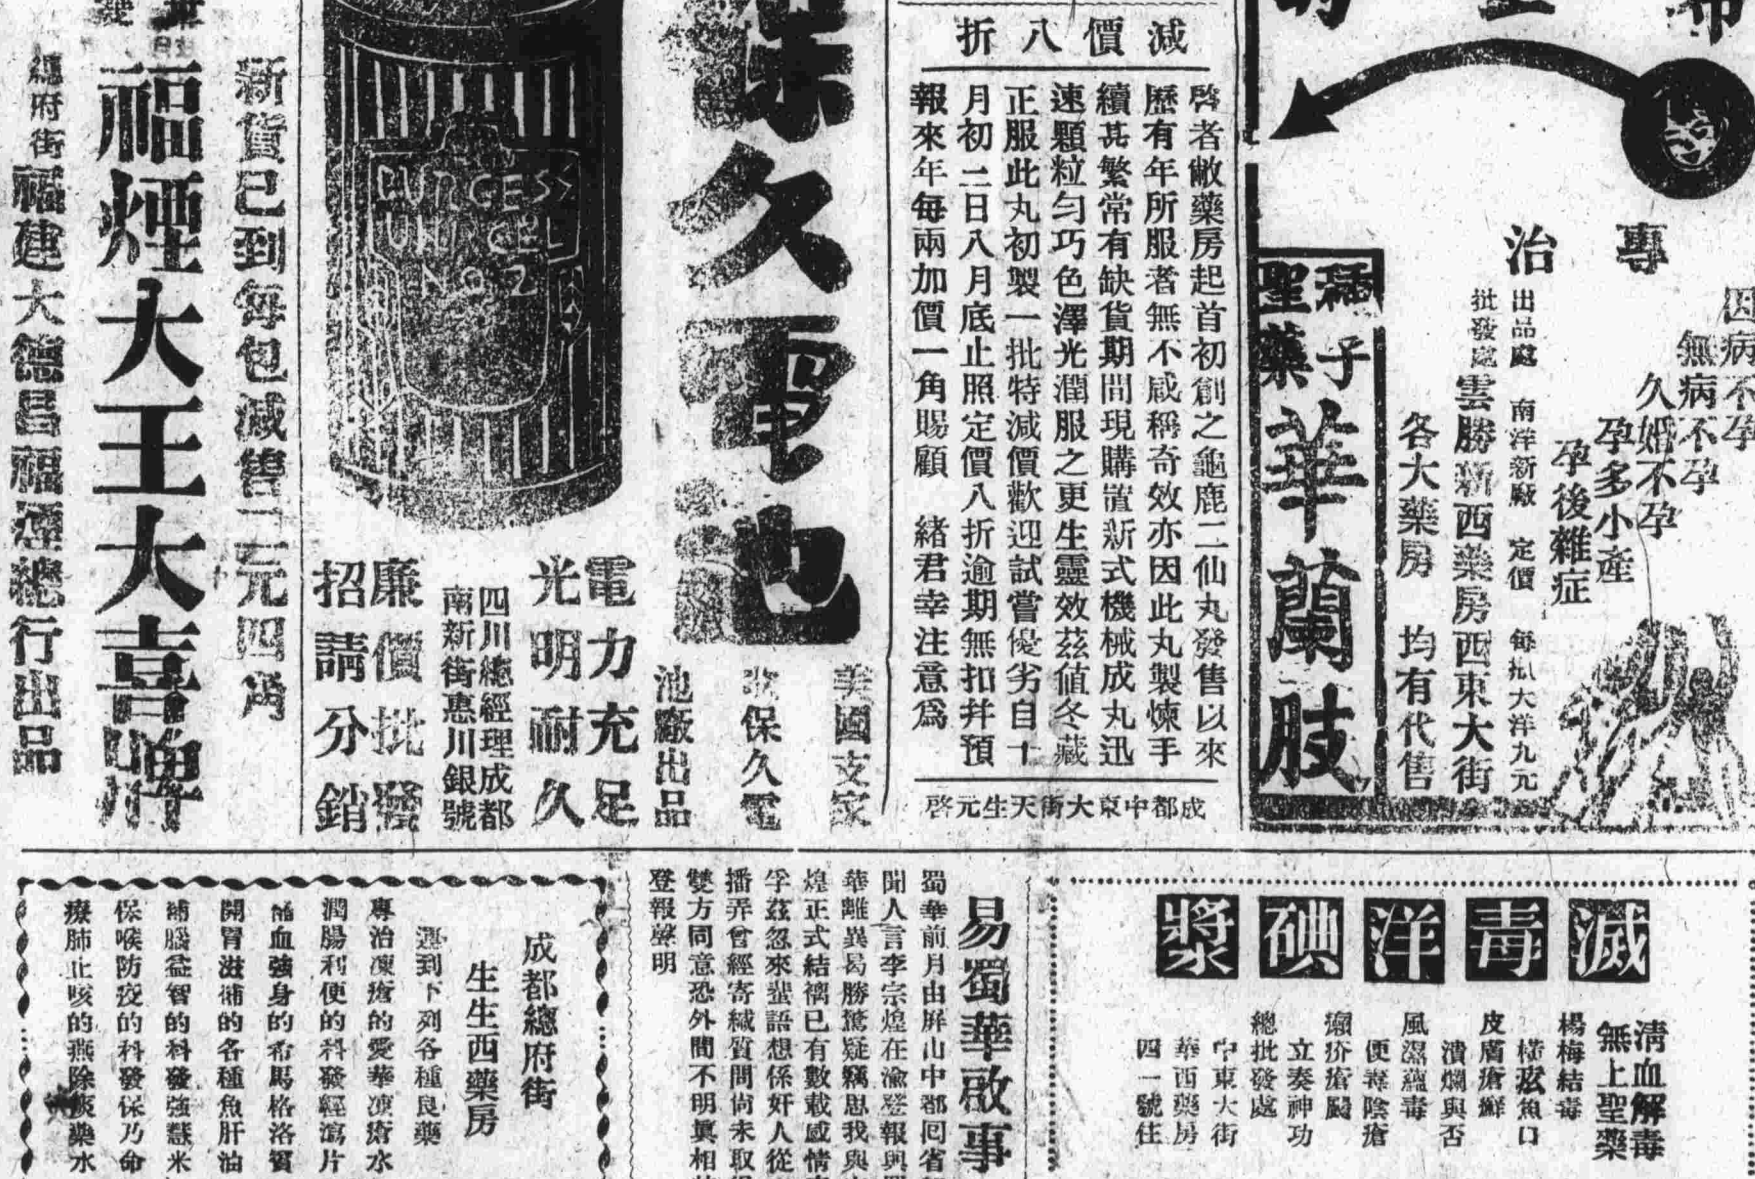 專治
因病不孕
無病不孕
久婚不孕
孕多小產
孕後雜症
出品處 南洋新廠 定價 每瓶大洋九元
批發處 雲勝新西藥房西東大街
各大藥房 均有代售
種子聖藥 華蘭肢
減價八折
啓者敝藥房起首初創之龜鹿二仙丸發售以來
歷有年所服者無不咸稱奇效亦因此丸製煉手
續甚繁常有缺貨期間現購置新式機械成丸迅
速顆粒勻巧色澤光潤服之更生靈效茲値冬藏
正服此丸初製一批特減價歡迎試嘗優劣自十
月初二日八月底止照定價八折逾期無扣幷預
報來年每兩加價一角賜顧 緒君幸注意爲
成都中東大街天生元啓
久電池
美國支家
保久電
池廠出品
BURGESS
UNICEL
NO 2
電力充足
光明耐久
四川總經理成都
南新街惠川銀號
廉價批發
招請分銷
新貨已到每包減售二元四角
福煙大王大喜牌
總府街福建大德昌福煙總行出品
滅毒洋碘漿
淸血解毒
無上聖藥
楊梅結毒
橫痃魚口
皮膚瘡鮮
潰爛與否
風濕蘊毒
便毒陰瘡
癩疥瘡闘
立奏神功
總批發處
中東大街
華西藥房
四一號住
易蜀華啟事
蜀華前月由屏山中都囘省
聞人言李宗煌在渝登報與
華離異曷勝驚疑竊思我與
煌正式結褵已有數載感情
孚茲忽來蜚語想係奸人從
播弄曾經寄緘質問尙未取
雙方同意恐外間不明眞相
登報聲明
成都總府街
生生西藥房
運到下列各種良藥
專治凍瘡的愛華凍瘡水
潤腸利便的科發輕瀉片
補血強身的布馬格洛賓
開胃滋補的各種魚肝油
補腦益智的科發強慧米
保喉防疫的科發保乃命
療肺止咳的燕除痰藥水